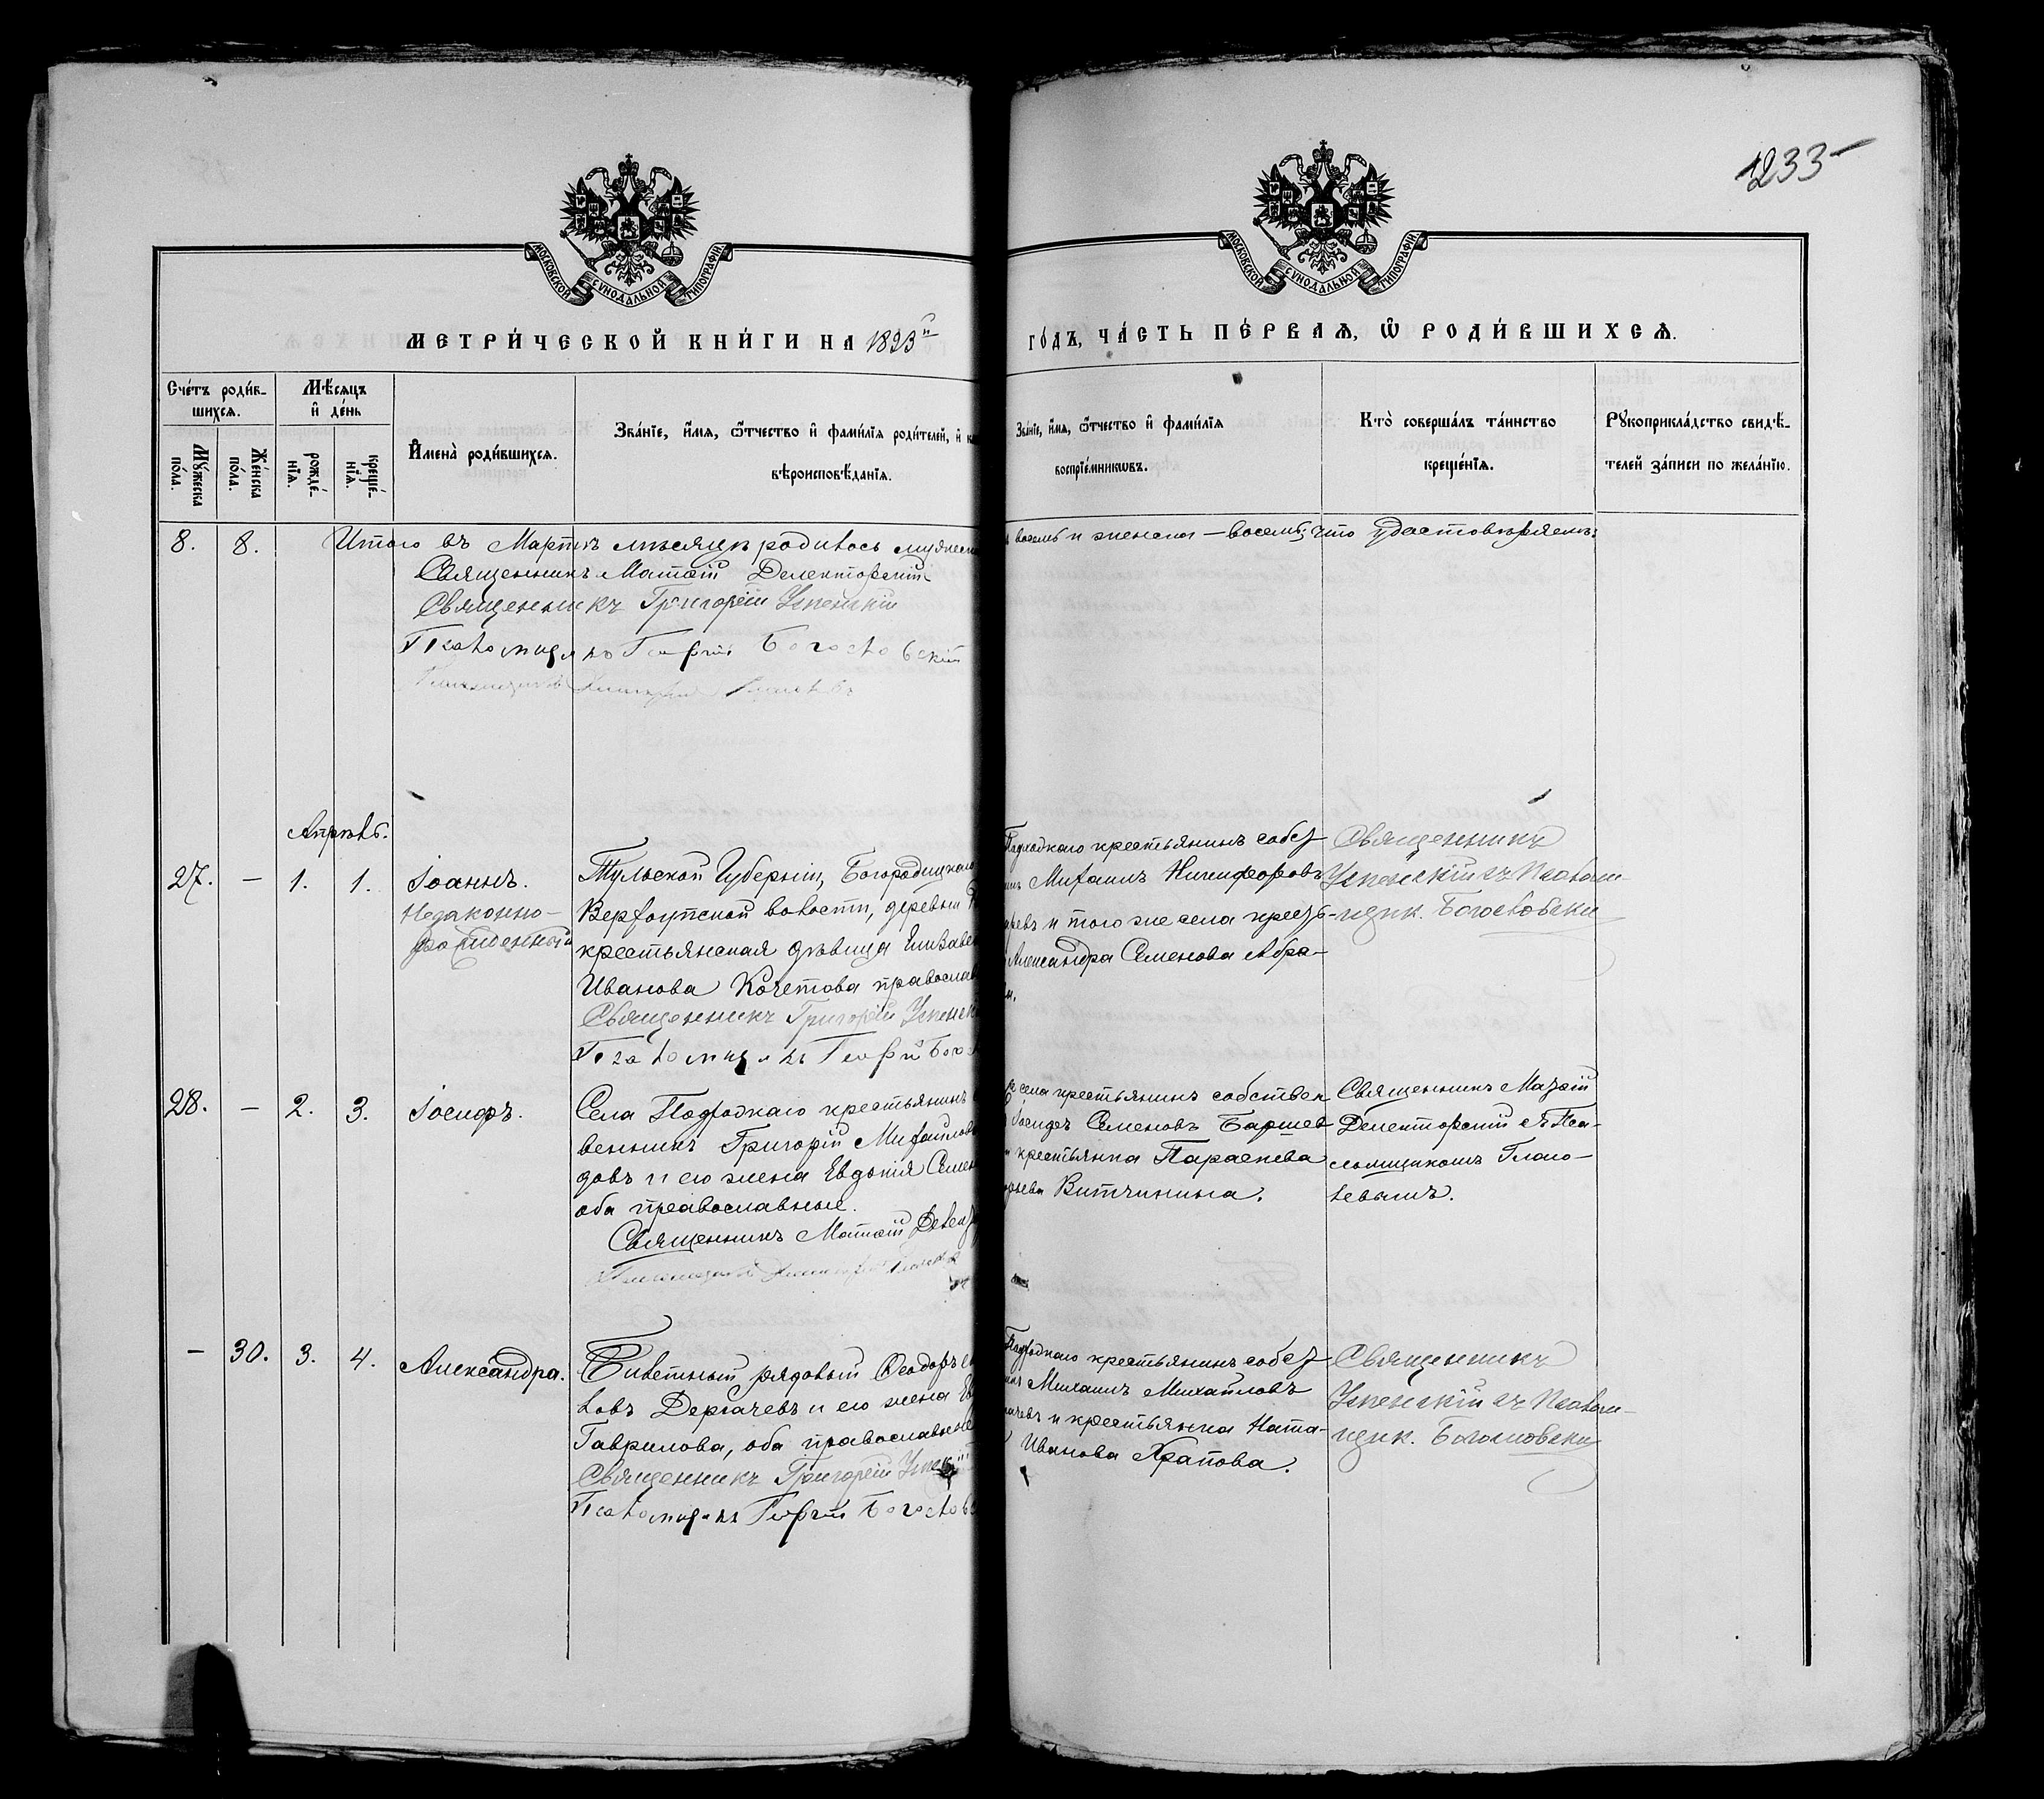 1233
МОСКОВСКОЙ СѴНОДАЛЬНОЙ ТИПОГРАФІИ.
МОСКОВСКОЙ СѴНОДАЛЬНОЙ ТИПОГРАФІИ.
МЕТРИ́ЧЕСКОЙ КНИ́ГИ НА 1893
ГО́ДЪ, ЧА́СТЬ ПЕ́РВАѦ, Ѡ҆ РОДИ́ВШИХСѦ.
Сче́тъ роди́в-
шихсѧ.
Мꙋ́жеска
по́ла.
Же́нска
по́ла.
Мѣ́сѧцъ
и҆ де́нь
рожде́-
нїѧ.
креще́-
нїѧ.
И҆мена̀ роди́вшихсѧ.
Зва́нїе, и҆́мѧ, ѻ҆́тчество и҆ фами́лїѧ роди́телей, и҆
вѣроисповѣ́данїѧ.
Зва́нїе, и҆́мѧ, ѻ҆́тчество и҆ фами́лїѧ
воспрїе́мникѡвъ.
Кто̀ соверша́лъ та́инство
креще́нїѧ.
Рꙋкоприкла́дство свидѣ́-
телей за́писи по жела́нїю.
8. 8. Итого въ Мартѣ мѣсяцѣ родилось мужеск
восемь и женска – восемь; что удостовѣряемъ:
Священникъ Матѳій Делекторскій
Священникъ Григорій Успенскій
Псаломщикъ Георгій Богословскій
Апрѣль.
27. – 1. 1. Іоаннъ.
Незаконно-
рожденный
Тульской Губерніи, Богородицкаго
Верхоупской волости, деревни
крестьянская дѣвица Елизаве
Иванова Кочетова православ
Священникъ Григорій Успенск
Псаломщикъ Георгій Богос
крестьянинъ собст
Михаилъ Никифоровъ
и того же села крестъ-
Александра Семенова Абра-
Священникъ
Успенскій съ Псалом-
щик. Богословски
28. – 2. 3. Іосифъ.
Села крестьянинъ
венникъ Григорій Михайловъ
довъ и его жена Евдокія Семен
оба православные.
Священникъ Матѳій Делект
села крестьянинъ собствен
Іосифъ Семеновъ Баршев
крестьянка Параскева
Витчинина.
Священникъ Матѳій
Делекторскій съ Пса-
ломщикомъ Глаго-
левымъ.
– 30. 3. 4. Александра.
Билетный рядовый Ѳеодоръ
ловъ Дергачевъ и его жена
Гаврилова, оба православные
Священникъ Григорій Успенскій
Псаломщикъ Георгій Богослов
крестьянинъ собст
Михаилъ Михайловъ
и крестьянка Ната-
Иванова Храпова.
Священникъ
Успенскій съ Псалом-
щик. Богословски